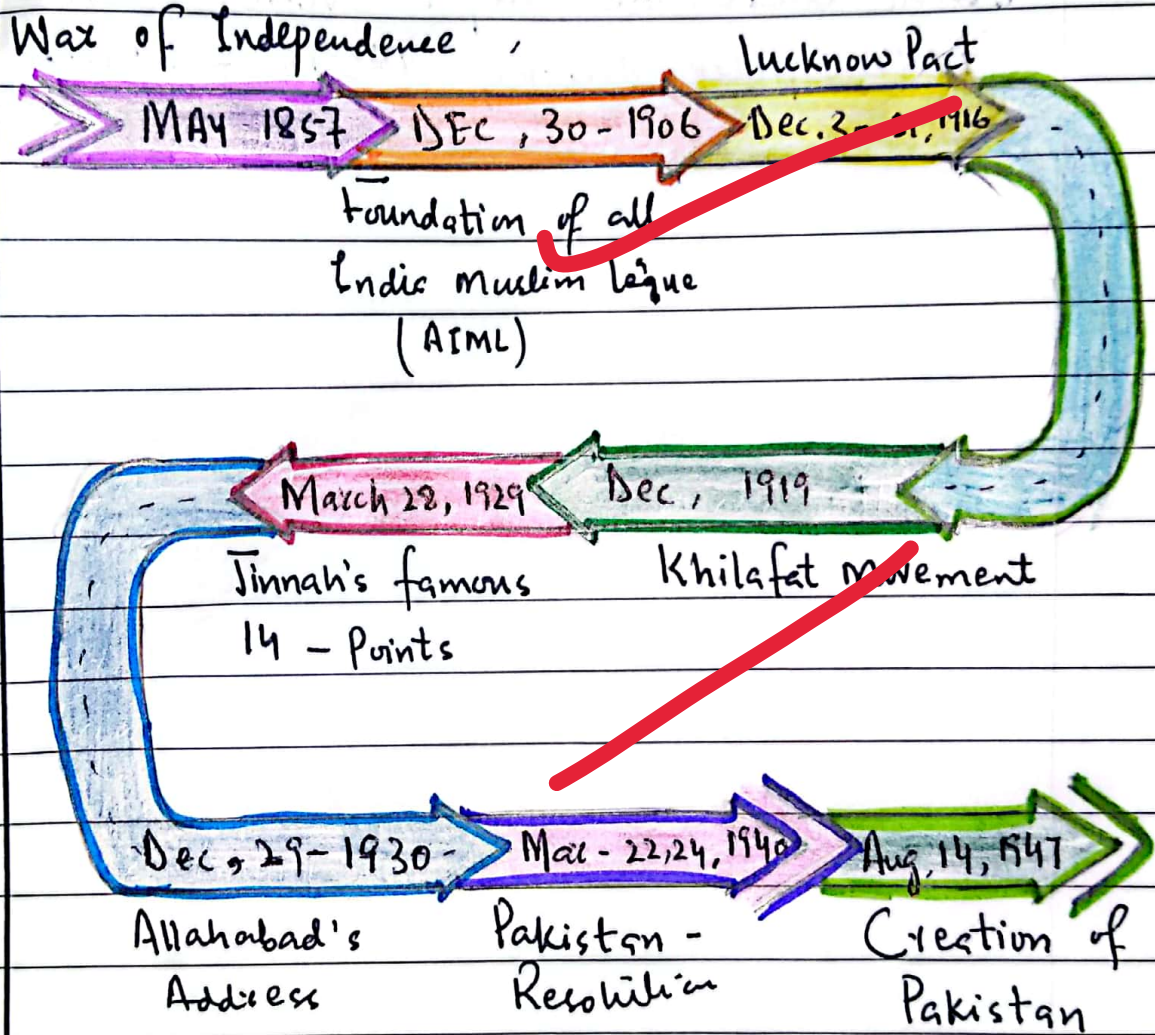 War of Independence
Lucknow Pact
MAY 1857
DEC, 30-1906
Dec. 1916
Foundation of all
India Muslim league
(AIML)
March 28, 1929
Dec, 1919
Jinnah's famous
14 - Points
Khilafat Movement
Dec, 29-1930
Mar - 22,24, 1940
Aug, 14, 1947
Allahabad's
Address
Pakistan -
Resolution
Creation of
Pakistan